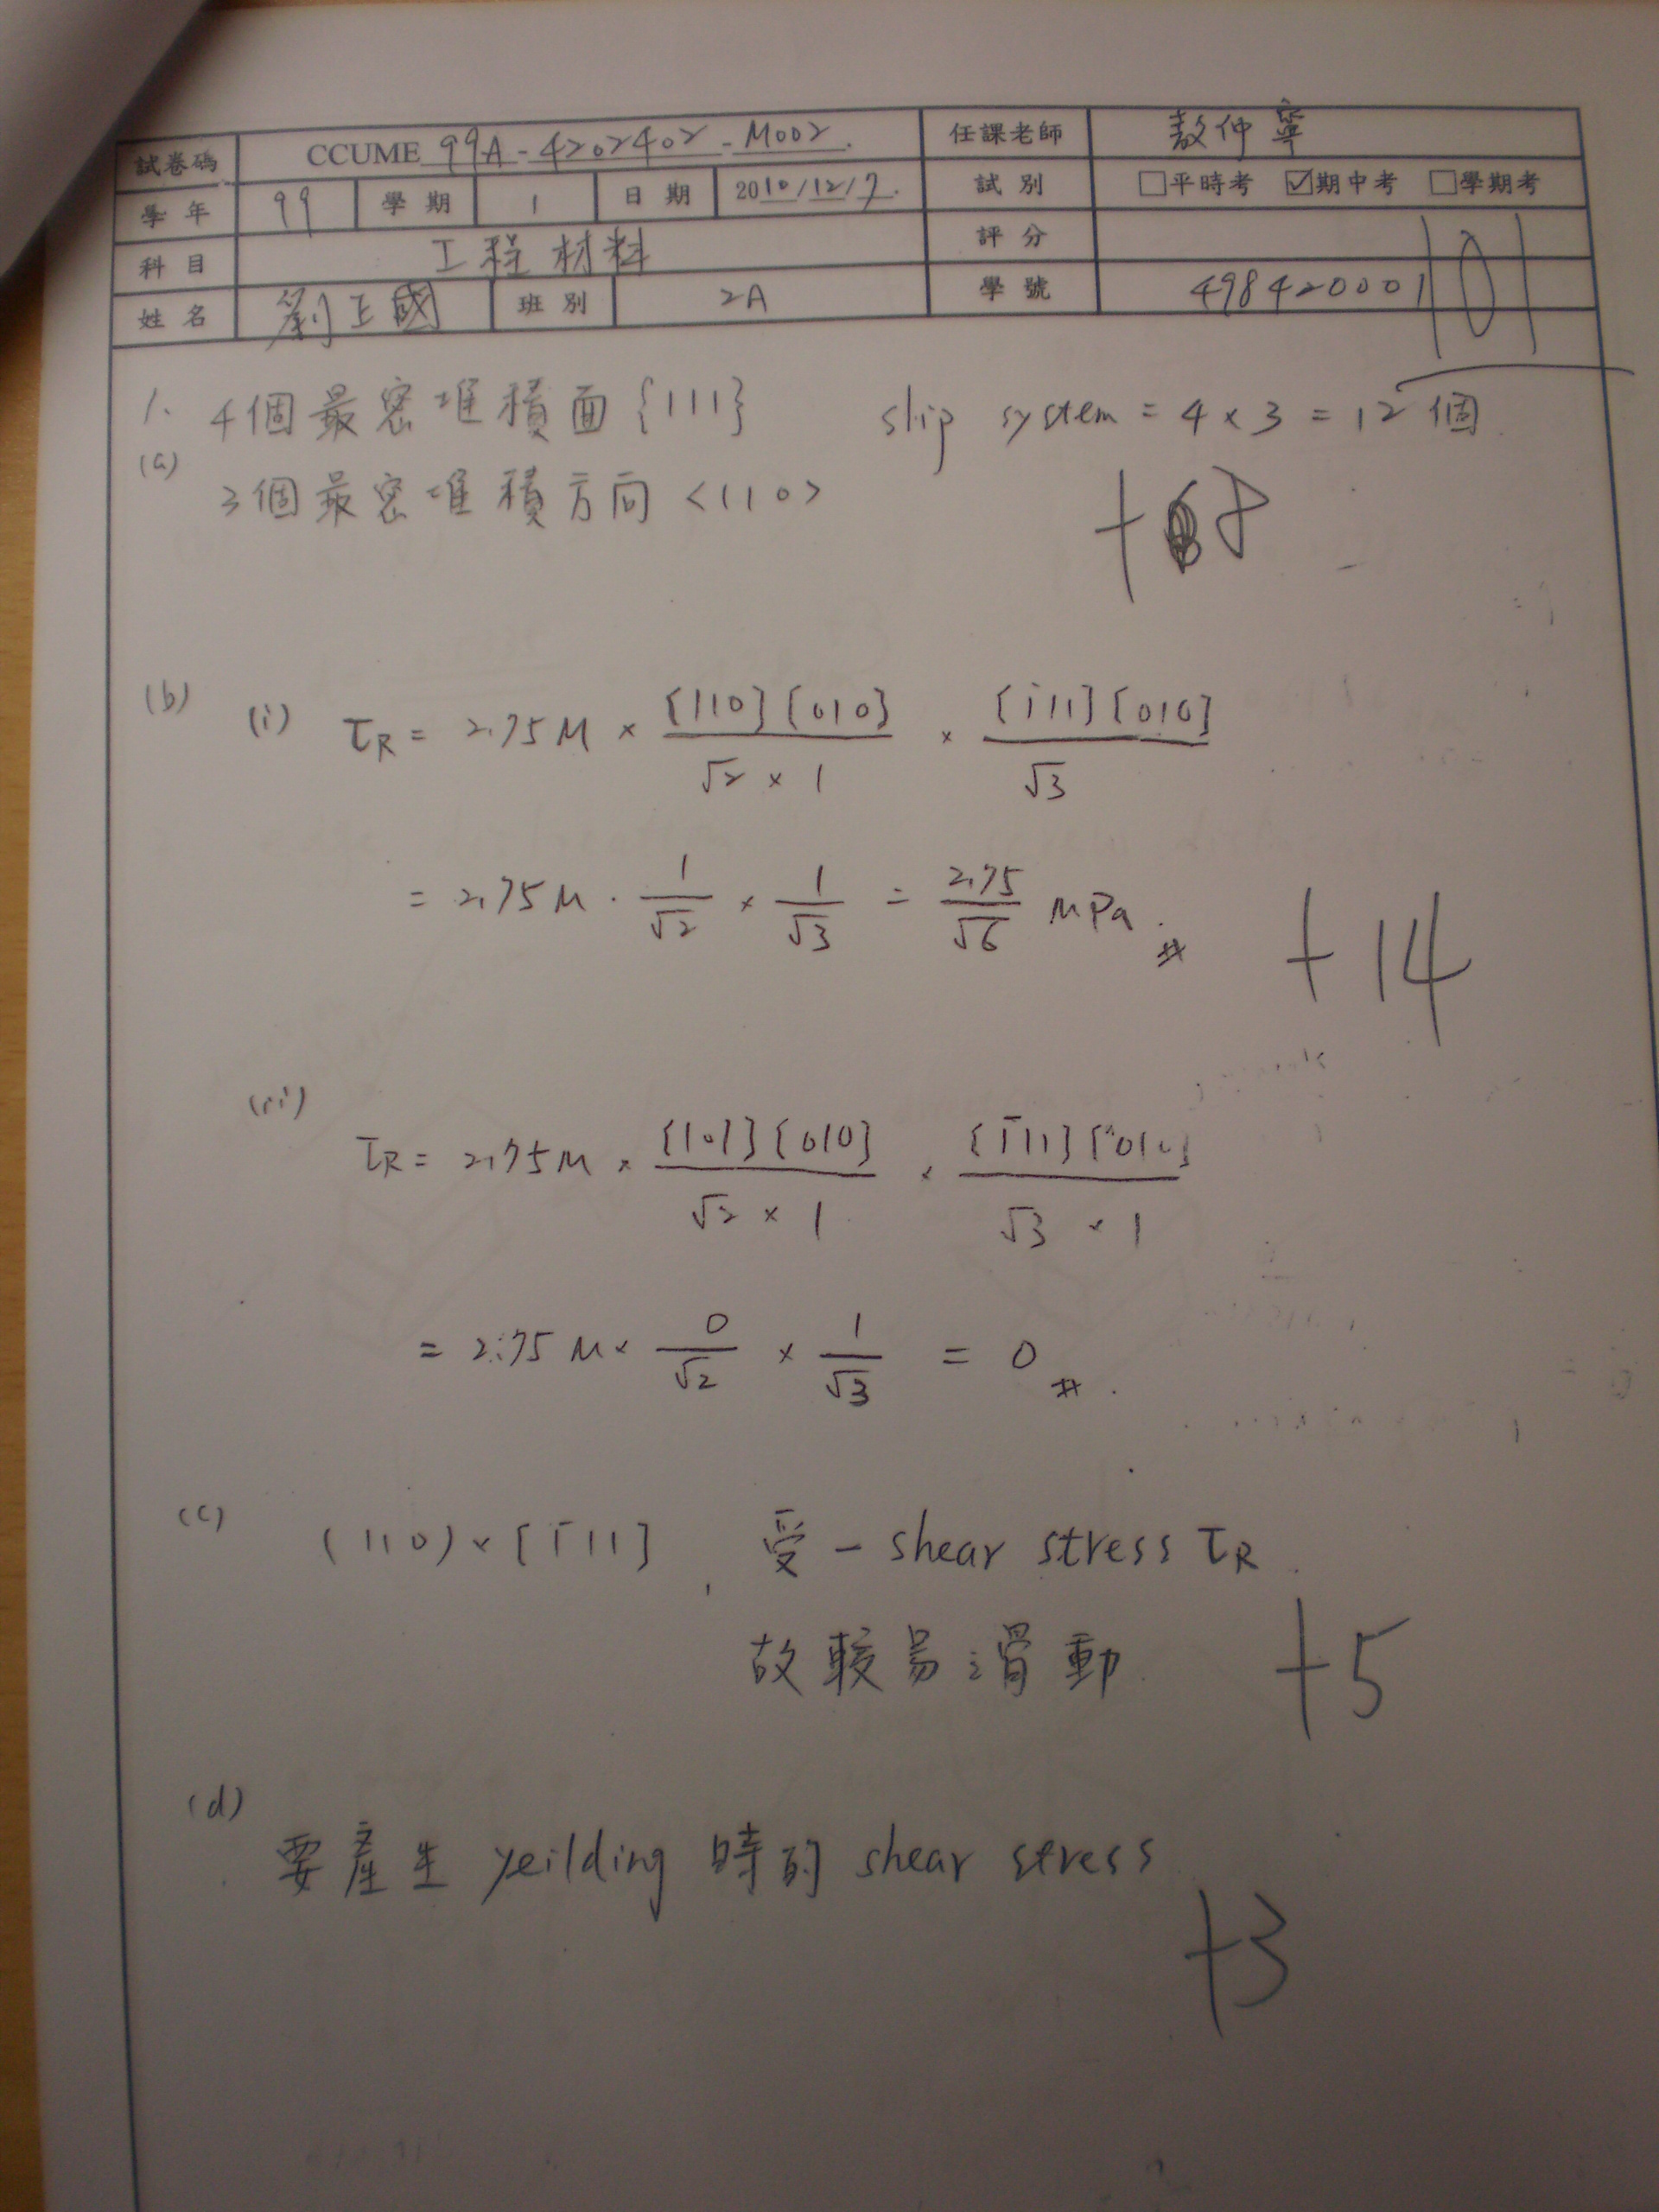 試卷碼 CCUME 99A-4202402-M002. 任課老師 敖仲寧
學年 99 學期 1 日期 2010/12/7. 試別 □平時考 ☑期中考 □學期考
科目 工程材料 評分 101
姓名 劉正國 班別 2A 學號 498420001
1. 4個最密堆積面{111} slip system = 4 × 3 = 12個
(a) 3個最密堆積方向<110>
+8
(b) (i) τR = 2.75M × [110][010] / √2 × 1 × [1̄11][010] / √3
= 2.75M · 1/√2 × 1/√3 = 2.75/√6 MPa. #
+14
(ii) τR = 2.75M × [101][010] / √2 × 1 × [1̄11][010] / √3 × 1
= 2.75M × 0/√2 × 1/√3 = 0 #.
(c) (110) × [1̄11], 受一 shear stress τR.
故較易滑動.
+5
(d) 要產生 yeilding 時的 shear stress
+3